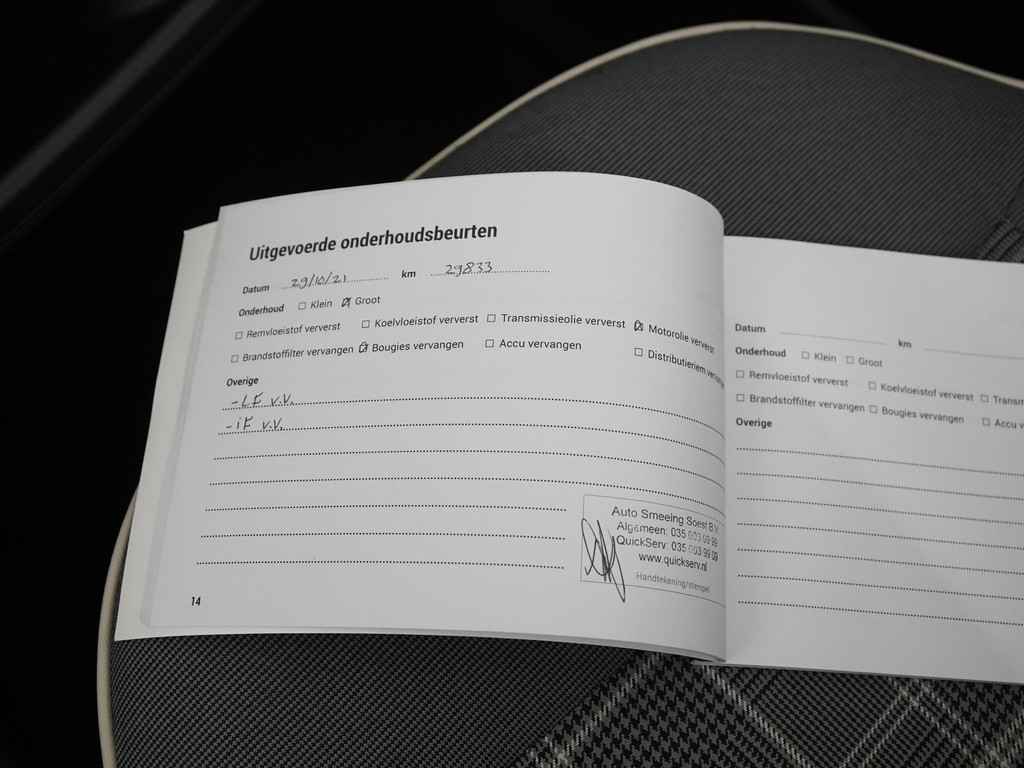 Uitgevoerde onderhoudsbeurten
Datum 29/10/21 km 29833
Onderhoud ☐ Klein ☑ Groot
☐ Remvloeistof ververst ☐ Koelvloeistof ververst ☐ Transmissieolie ververst ☑ Motorolie ververst
☐ Brandstoffilter vervangen ☑ Bougies vervangen ☐ Accu vervangen ☐ Distributieriem
Overige
-LF v.v.
-iF v.v.
Auto Smeeing Soest B.V.
Algemeen: 035 603 99 99
QuickServ: 035 603 99 09
www.quickserv.nl
Handtekening/stempel
14
Datum km
Onderhoud ☐ Klein ☐ Groot
☐ Remvloeistof ververst ☐ Koelvloeistof ververst ☐ Transm
☐ Brandstoffilter vervangen ☐ Bougies vervangen ☐ Accu v
Overige